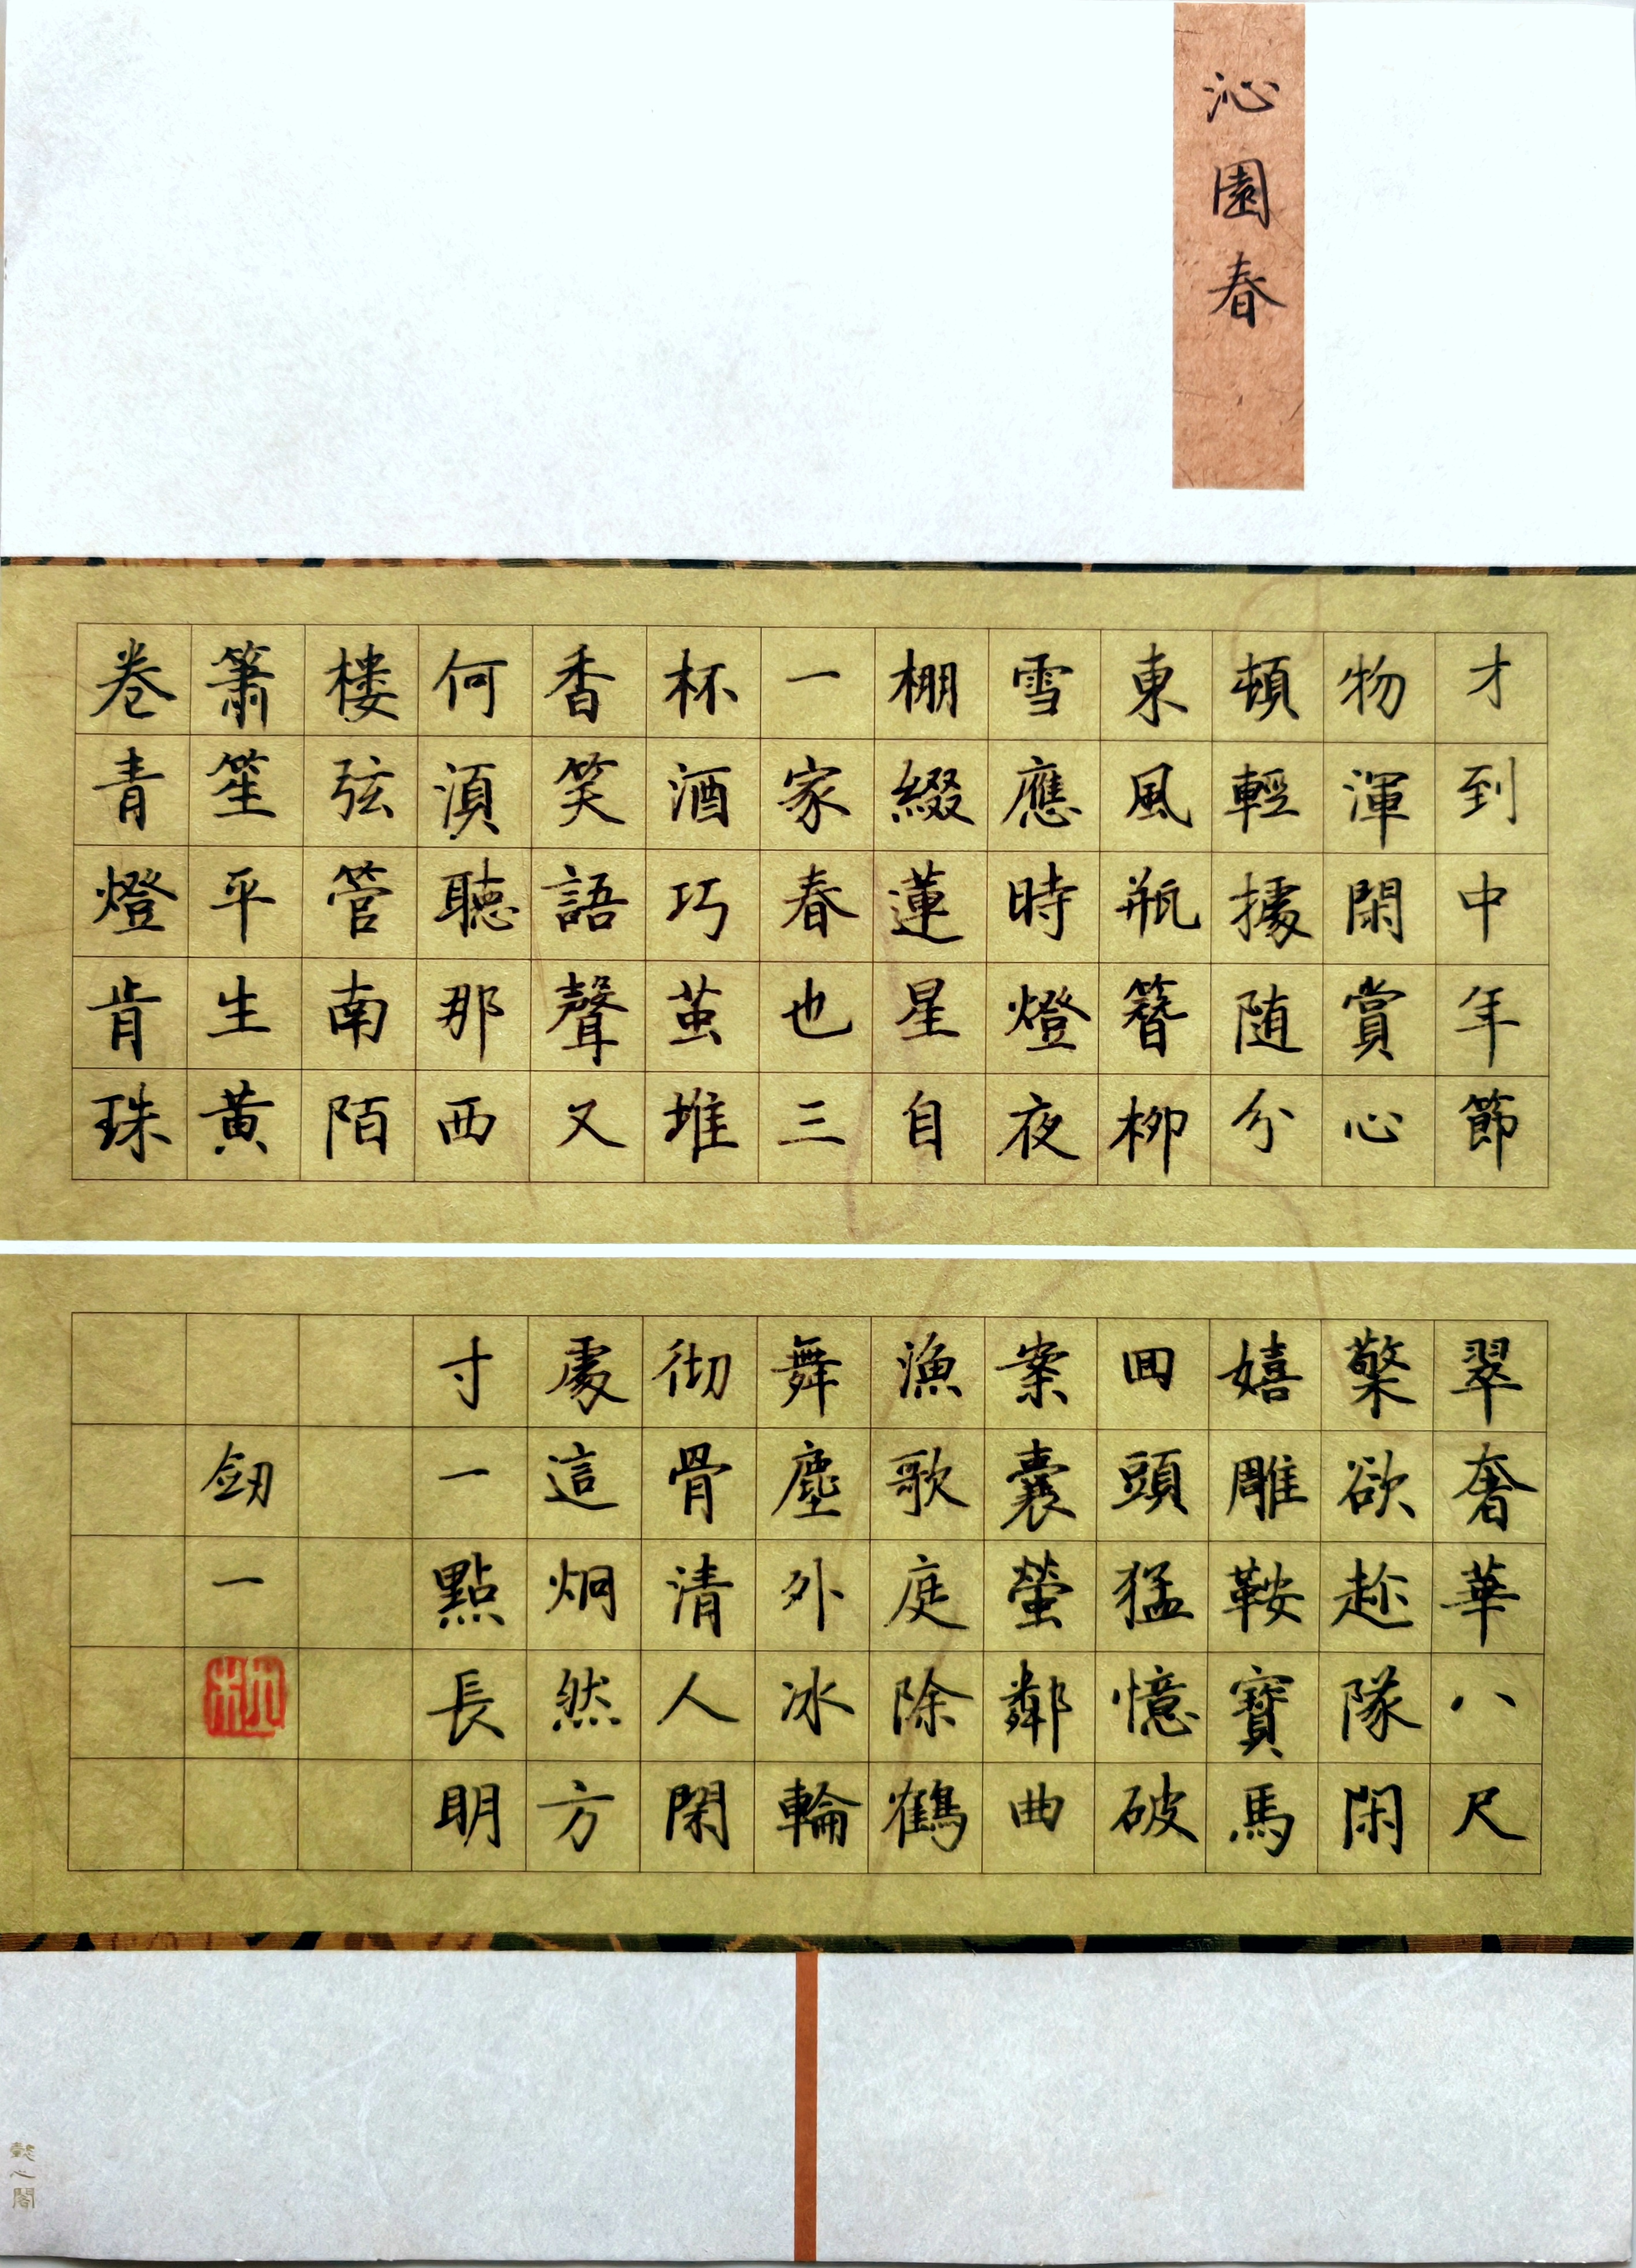 沁園春
才到中年節
物渾閑賞心
頓輕據随分
東風瓶簪柳
雪應時燈夜
棚綴蓮星自
一家春也三
杯酒巧茧堆
香笑語聲又
何湏聽那西
楼弦管南陌
簫笙平生黄
卷青燈肯珠
翠奢華八尺
檠欲趂隊閑
嬉雕鞍寶馬
回頭猛憶破
案囊螢鄰曲
漁歌庭除鶴
舞塵外冰輪
彻骨清人閑
處這炯然方
寸一點長明
劒一